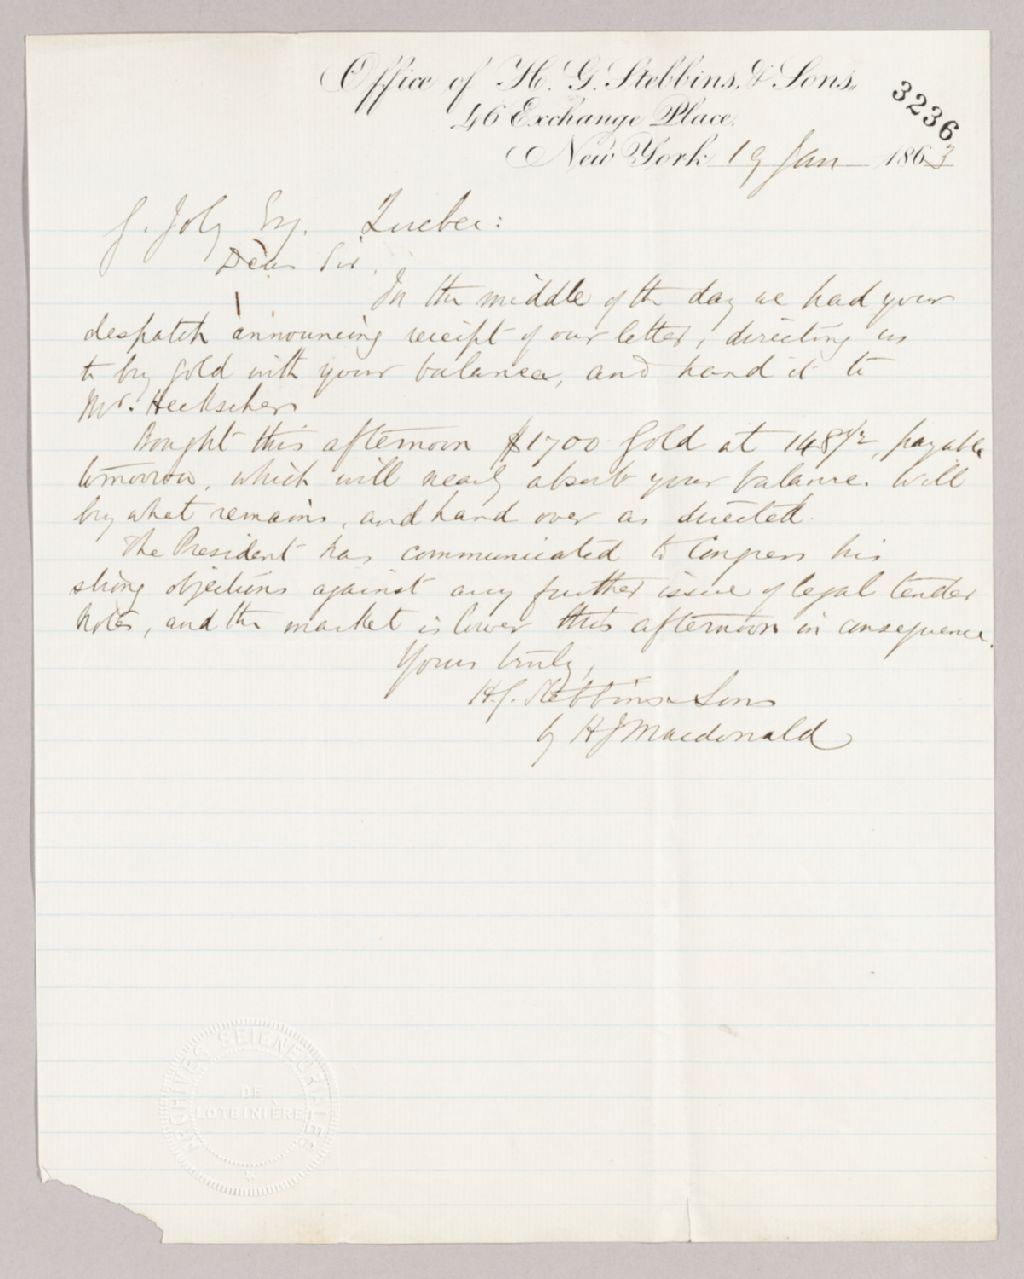 Office of H. G. Stebbins, & Sons,
46 Exchange Place.
3236
New York 19 Jan 1863
J. Joly Esq. Quebec:
Dear Sir,
In the middle of the day we had your
despatch announcing receipt of our letter, directing us
to buy gold with your balance, and hand it to
Mr. Heckscher
Bought this afternoon $1700 Gold at 148 1/2, payable
tomorrow, which will nearly absorb your balance. Will
buy what remains, and hand over as directed.
The President has communicated to Congress his
strong objections against any further issue of legal tender
Notes, and the market is lower this afternoon in consequence.
Yours truly,
H.G. Stebbins & Sons
by H J Macdonald
ARCHIVES SEIGNEURIALES
DE
LOTBINIÈRE